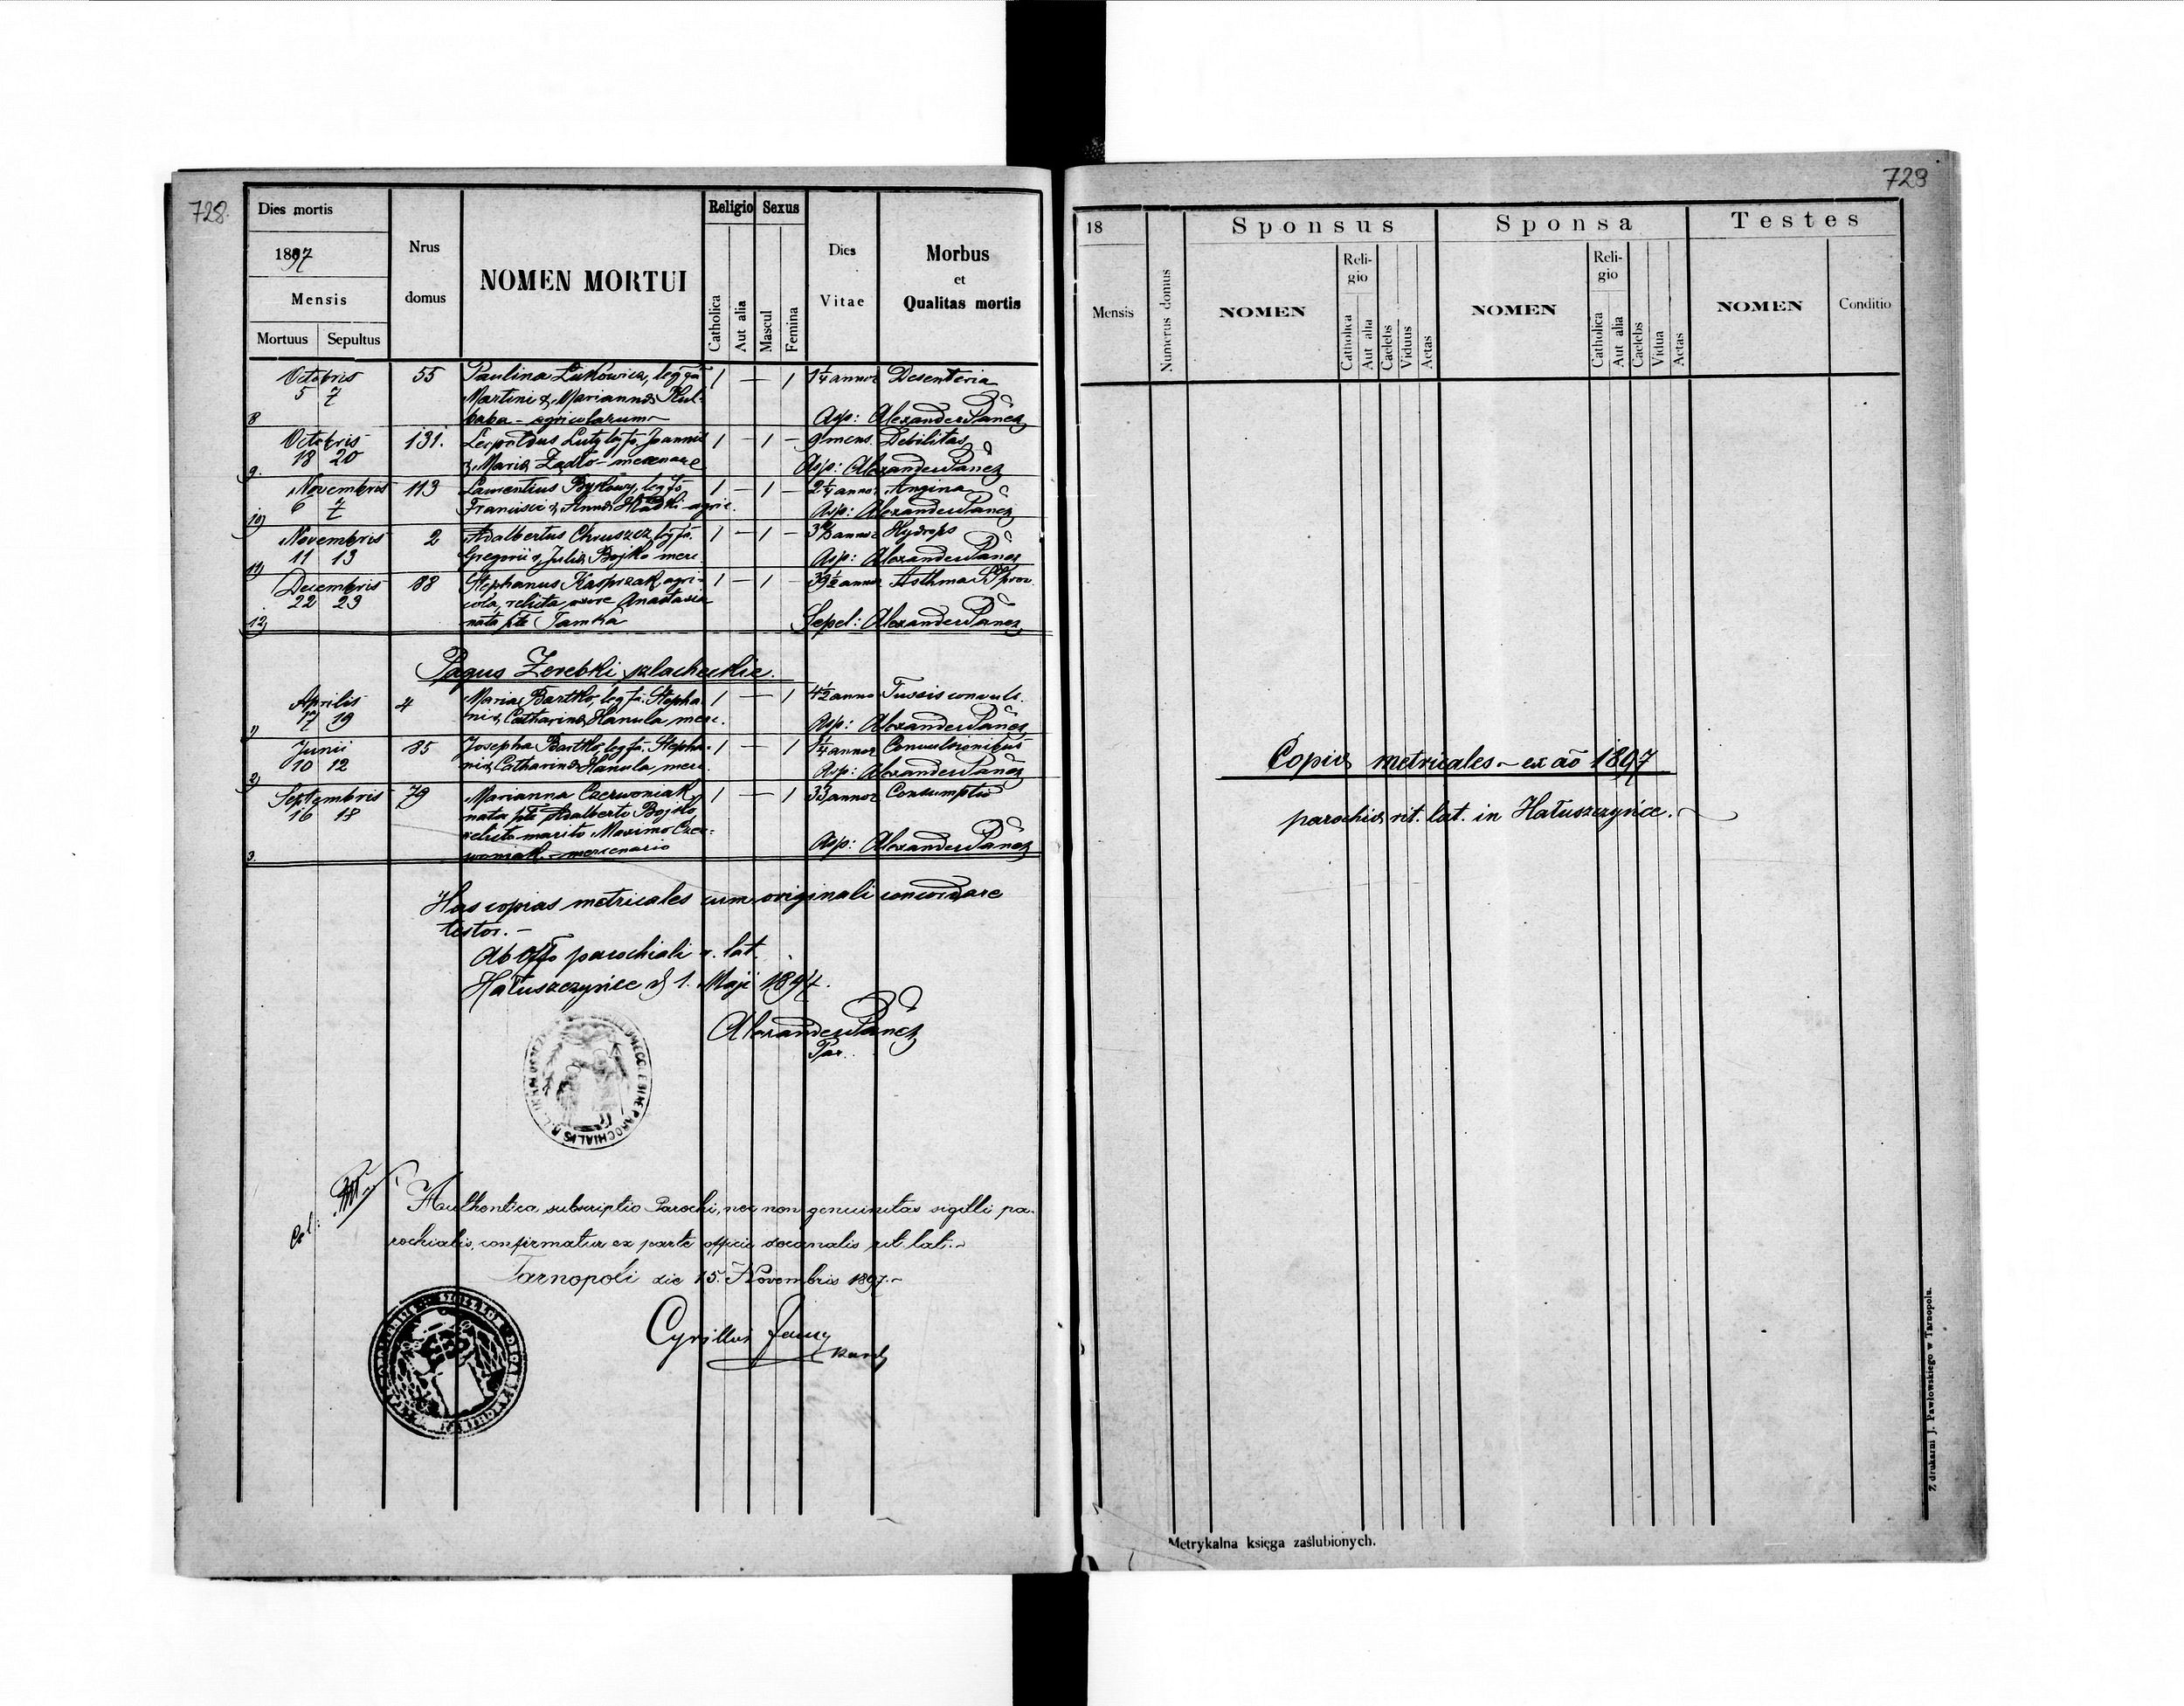 728.
Dies mortis
1897
Mensis
Mortuus Sepultus
Nrus
domus
NOMEN MORTUI
Religio
Catholica
Aut alia
Sexus
Mascul
Femina
Dies
Vitae
Morbus
et
Qualitas mortis
Octobris 55 Paulina Lukowicz, leg fa 1 — 1 1¼ annor Desenteria
5 7 Martini & Mariannæ Kul-
8 baba - agricolarum Asp: Alexander Panez
Octobris 131. Leopoldus Lutz leg fs. Joannis 1 — 1 — 9 mens. Debilitas
18 20
9. & Mariæ Żądło - mercenar Asp: Alexander Panez
Novembris 113 Laurentius leg fs 1 — 1 — 2¼ annor Angina
6 7
10) Francisci & Annæ Hladki agric. Asp: Alexander Panez
Novembris 2 Adalbertus Chruszcz leg fs. 1 — 1 — annor Hydrops
11 13
11) Gregorii & Juliæ Bojko merc Asp: Alexander Panez
Decembris 88 Stephanus Kasprzak agri- 1 — 1 — 39½ annor Asthma
22 23 cola, relicta uxore Anastasia
12) nata pte Jamka Sepel: Alexander Panez
Pagus Zerebki szlacheckie.
Aprilis 4 Maria Bartko, leg fa. Stepha- 1 — 1 4½ anno Tussis convuls.
17 19
1) ni & Catharinæ Hanula, merc. Asp: Alexander Panez
Junii 85 Josepha Bartko, leg fa. Stepha- 1 — 1 annor Convulsionibus
10 12
2) ni & Catharinæ Hanula, merc Asp: Alexander Panez
Septembris 79 Marianna Czerwoniak, 1 — 1 33 annor Consumptio
16 18 nata pte Adalberto Bojko
relicto marito Maximo Czer-
3. woniak - mercenario Asp: Alexander Panez
Has copias metricales cum originali concordare
testor. -
Ab offo parochiali r. lat.
Hałuszczyńce d 1. Maji 1897.
Alexander Panez
Par.
Authentica subscriptio Parochi, nec non genuinitas sigilli pa-
rochialis, confirmatur ex parte officii decanalis rit lat. -
Tarnopoli die 15. Novembris 1897. -
Cyrillus
729
18
Mensis
Numerus domus
Sponsus
NOMEN
Reli-
gio
Catholica
Aut alia
Caelebs
Viduus
Aetas
Sponsa
NOMEN
Reli-
gio
Catholica
Aut alia
Caelebs
Vidua
Aetas
Testes
NOMEN
Conditio
Copiæ metricales - ex aō 1897
parochiæ rit. lat. in Hałuszczyńce.
Metrykalna księga zaślubionych.
Z drukarni J. Pawłowskiego w Tarnopolu.